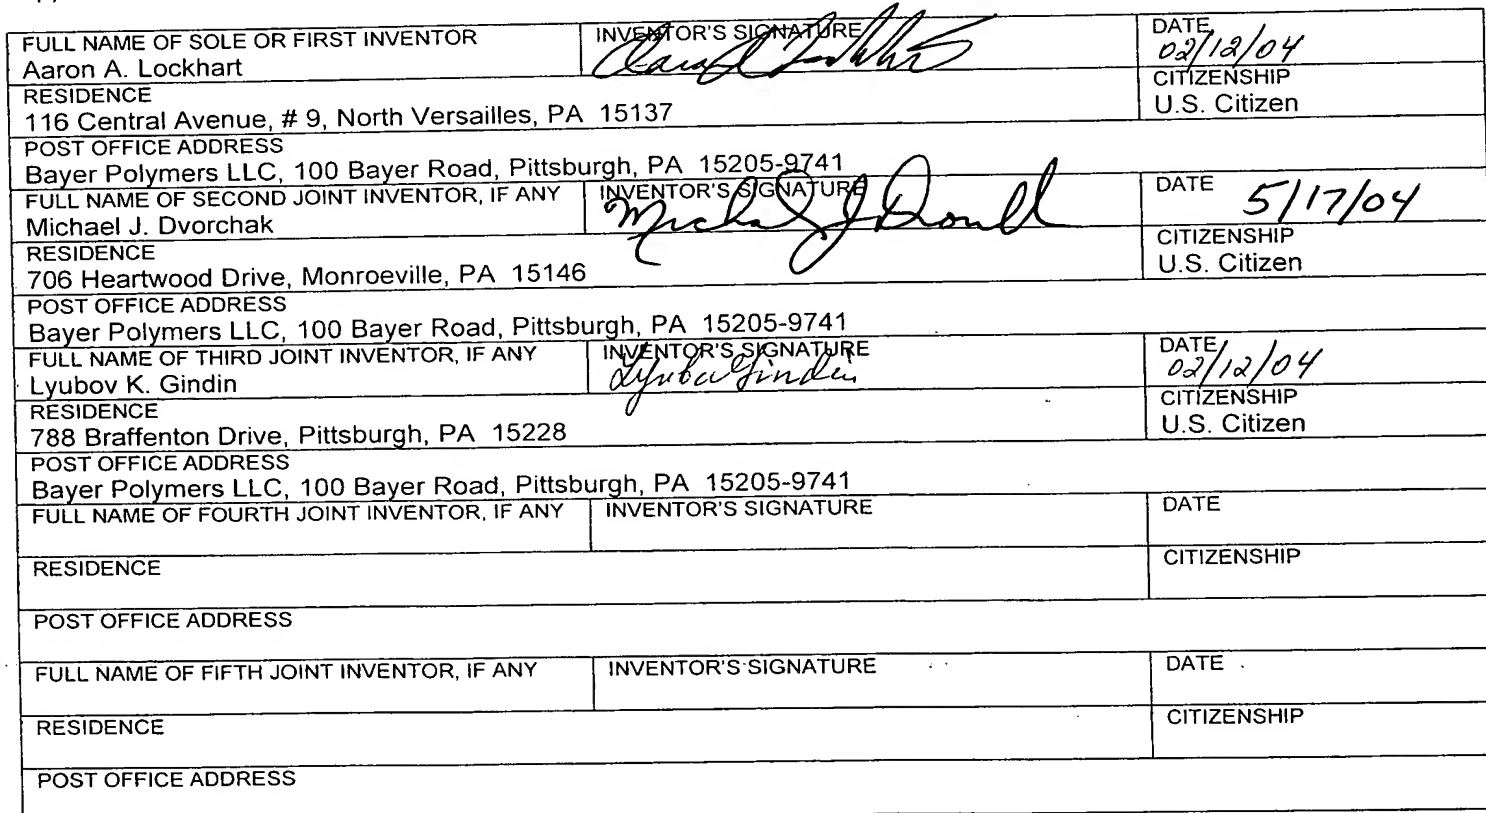 FULL NAME OF SOLE OR FIRST INVENTOR INVENTOR'S SIGNATURE DATE
Aaron A. Lockhart 02/12/04
RESIDENCE CITIZENSHIP
116 Central Avenue, # 9, North Versailles, PA 15137 U.S. Citizen
POST OFFICE ADDRESS
Bayer Polymers LLC, 100 Bayer Road, Pittsburgh, PA 15205-9741
FULL NAME OF SECOND JOINT INVENTOR, IF ANY INVENTOR'S SIGNATURE DATE
Michael J. Dvorchak 5/17/04
RESIDENCE CITIZENSHIP
706 Heartwood Drive, Monroeville, PA 15146 U.S. Citizen
POST OFFICE ADDRESS
Bayer Polymers LLC, 100 Bayer Road, Pittsburgh, PA 15205-9741
FULL NAME OF THIRD JOINT INVENTOR, IF ANY INVENTOR'S SIGNATURE DATE
Lyubov K. Gindin Lyubov Gindin 02/12/04
RESIDENCE CITIZENSHIP
788 Braffenton Drive, Pittsburgh, PA 15228 U.S. Citizen
POST OFFICE ADDRESS
Bayer Polymers LLC, 100 Bayer Road, Pittsburgh, PA 15205-9741
FULL NAME OF FOURTH JOINT INVENTOR, IF ANY INVENTOR'S SIGNATURE DATE
RESIDENCE CITIZENSHIP
POST OFFICE ADDRESS
FULL NAME OF FIFTH JOINT INVENTOR, IF ANY INVENTOR'S SIGNATURE DATE
RESIDENCE CITIZENSHIP
POST OFFICE ADDRESS